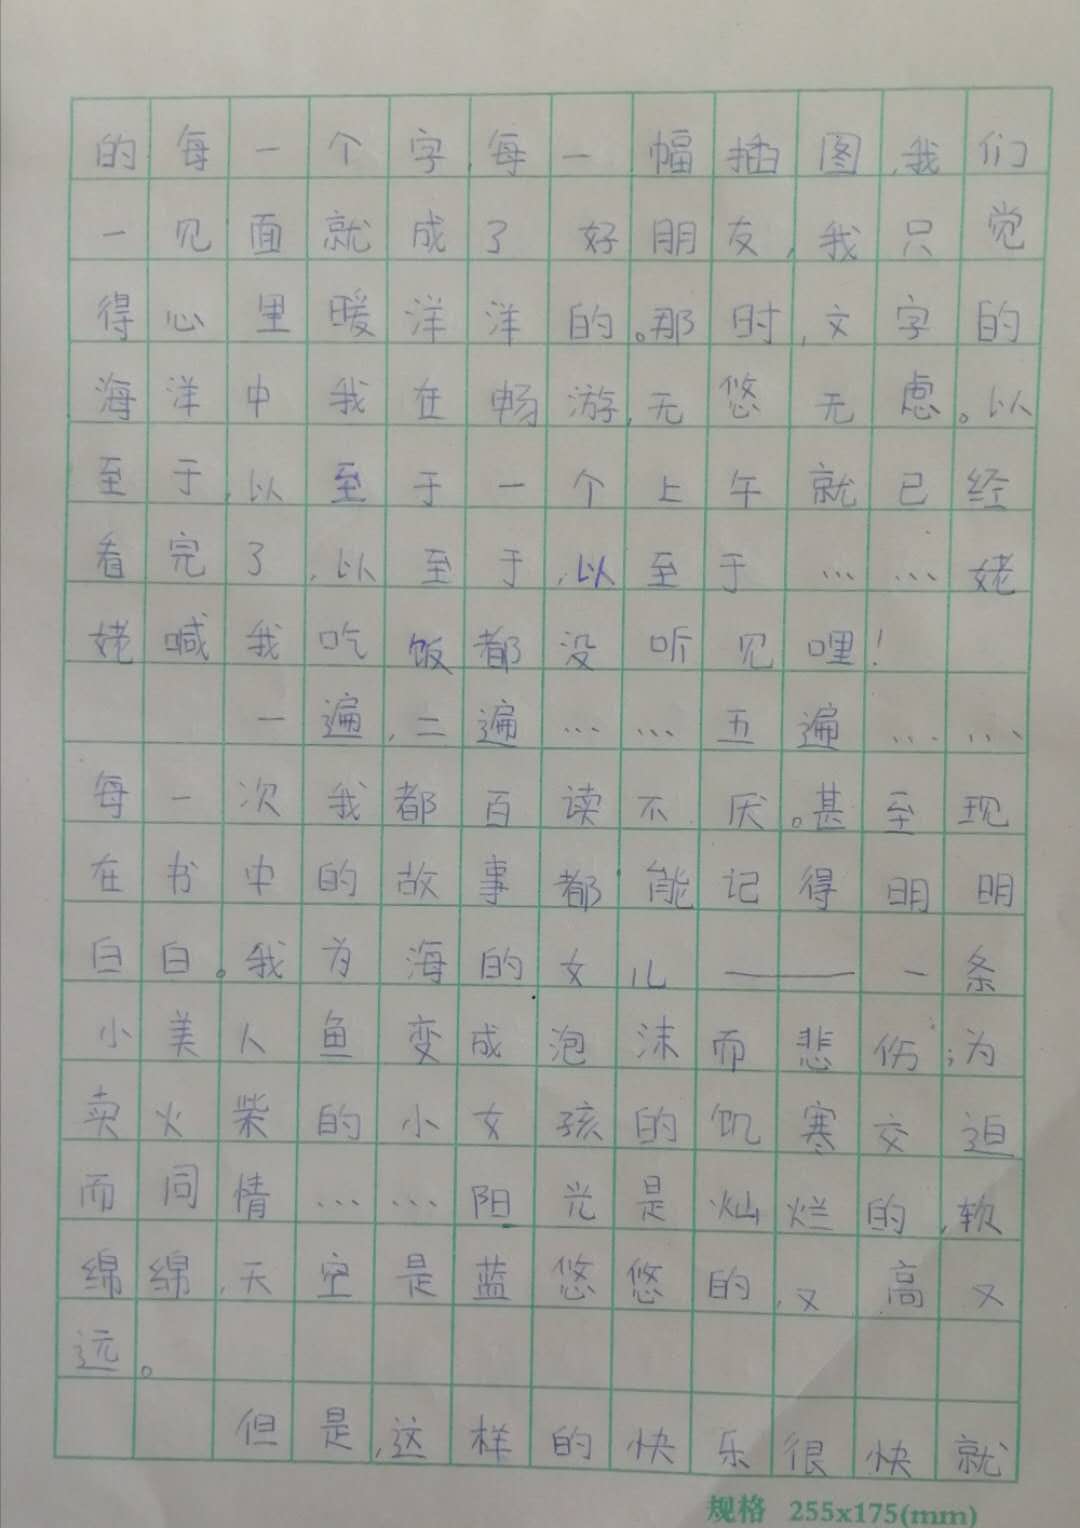 的每一个字,每一幅插图,我们
一见面就成了好朋友,我只觉
得心里暖洋洋的。那时,文字的
海洋中我在畅游,无悠无虑。以
至于,以至于一个上午就已经
看完了,以至于,以至于……姥
姥喊我吃饭都没听见哩!
一遍,二遍……五遍……
每一次我都百读不厌。甚至现
在书中的故事都能记得明明
白白。我为海的女儿——一条
小美人鱼变成泡沫而悲伤;为
卖火柴的小女孩的饥寒交迫
而同情……阳光是灿烂的,软
绵绵,天空是蓝悠悠的,又高又
远。
但是,这样的快乐很快就
规格 255x175(mm)